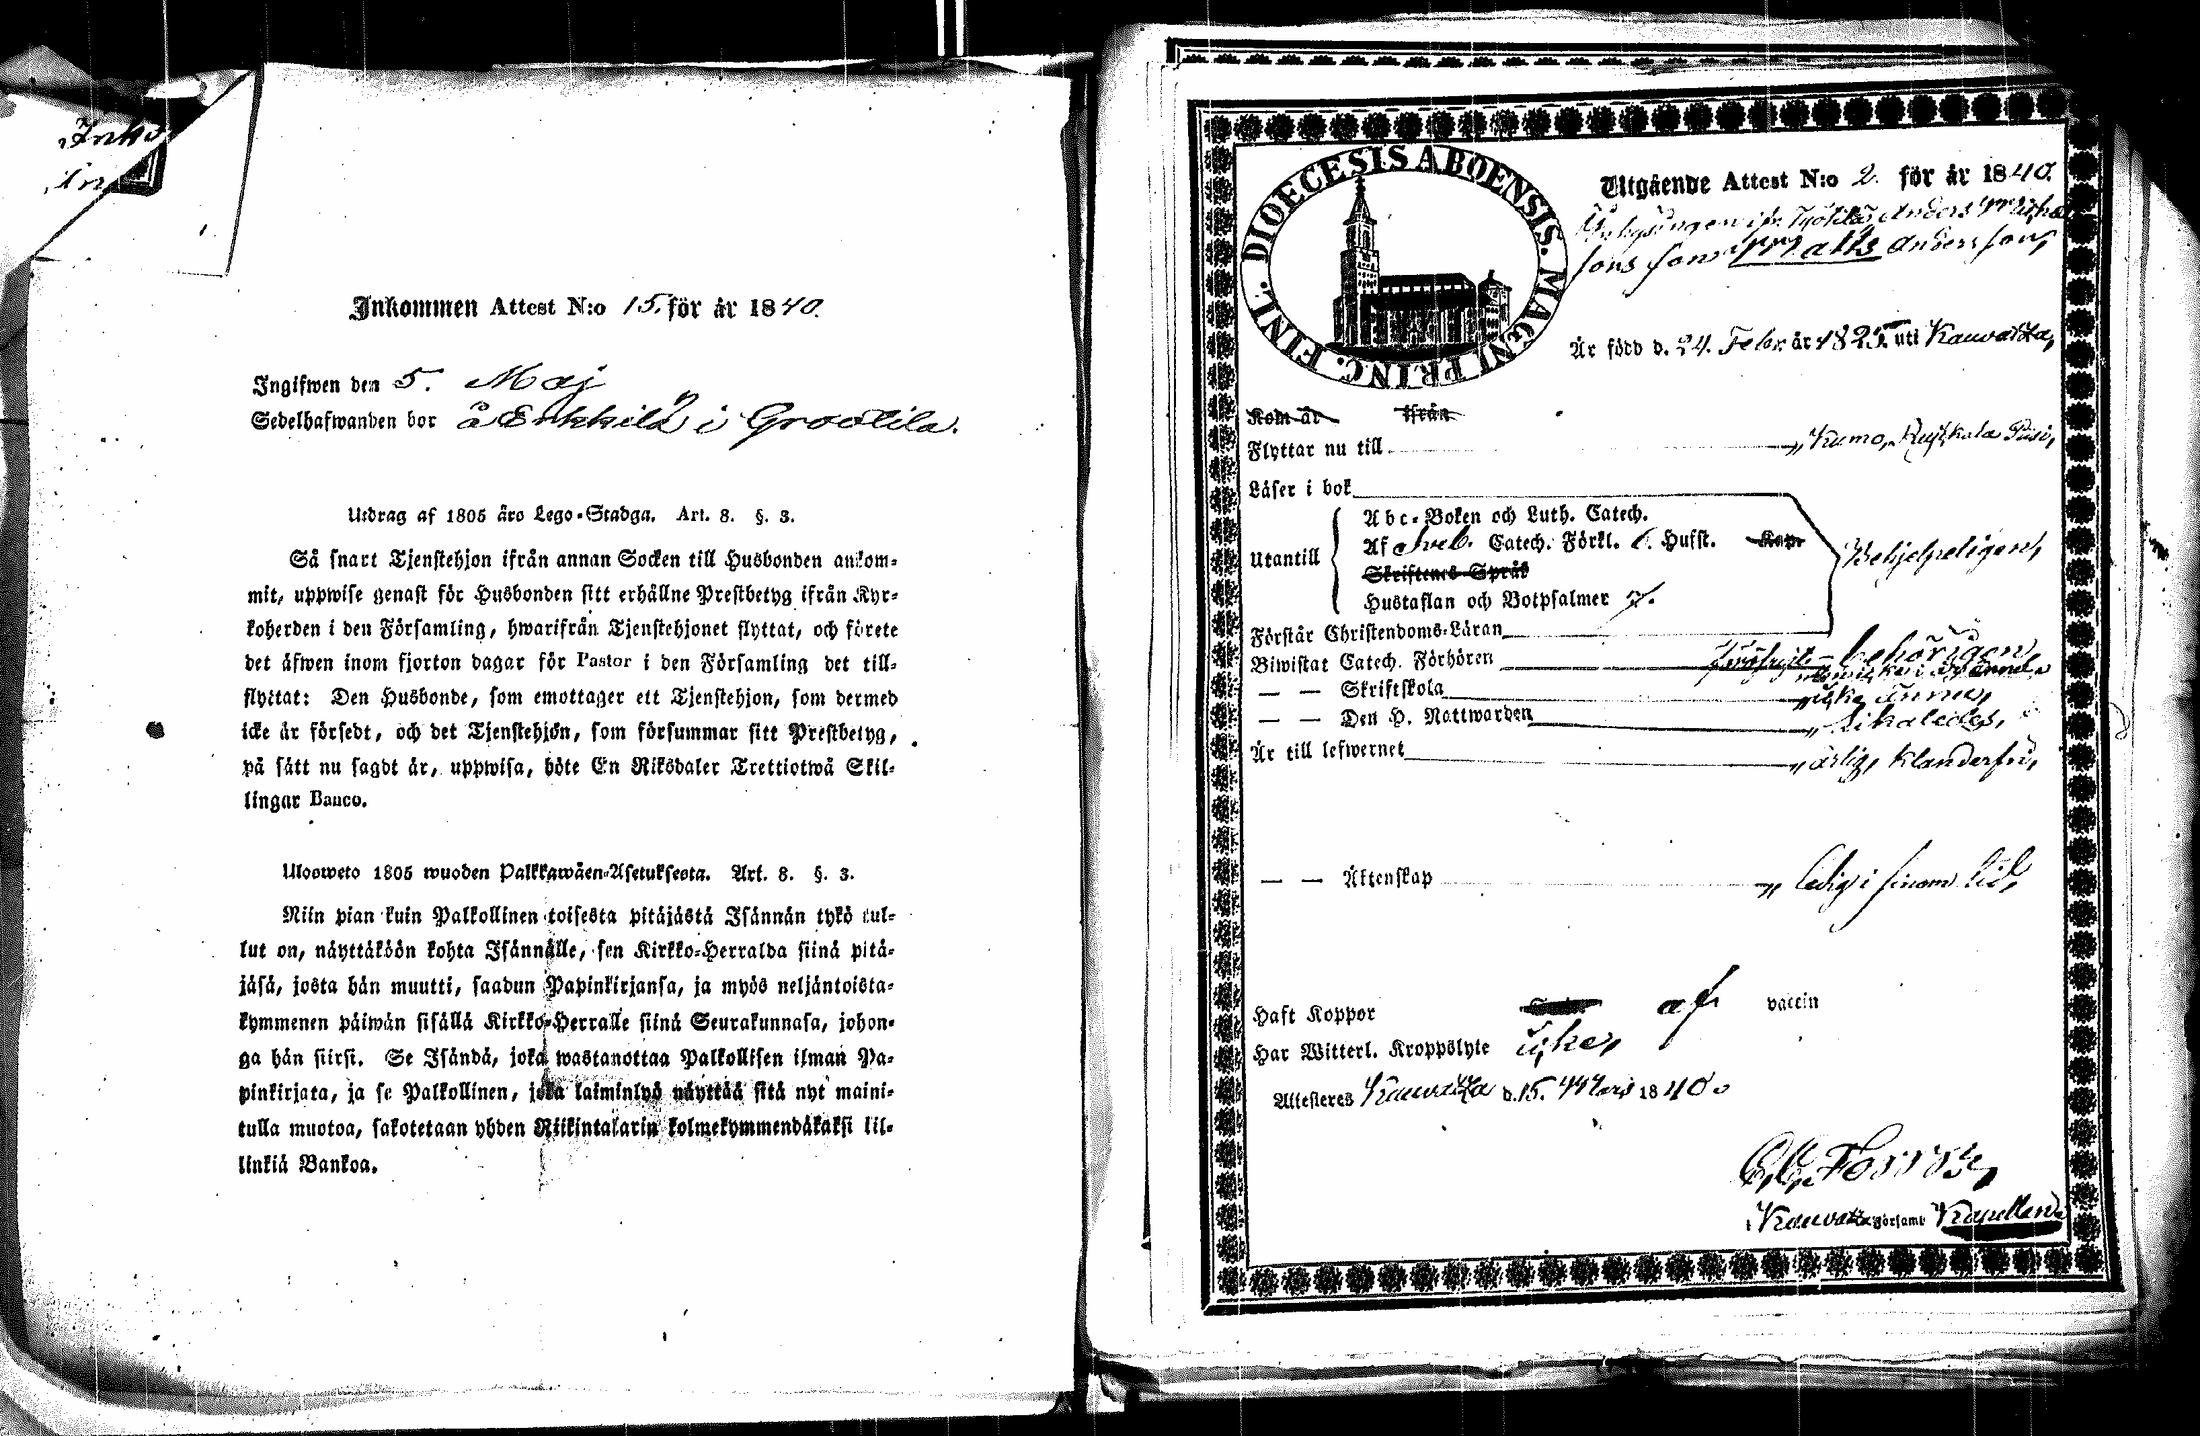 Inko
In
Inkommen Attest N:o 15. för år 1840.
Ingifwen den 5. Maj
Sedelhafwanden bor å Erkkilä i Grootila.
Utdrag af 1805 års Lego-Stadga. Art. 8. §. 3.
Så snart Tjenstehjon ifrån annan Socken till Husbonden ankom-
mit, uppwise genast för Husbonden sitt erhållne Prestbetyg ifrån Kyr-
koherden i den Församling, hwarifrån Tjenstehjonet flyttat, och förete
det äfwen inom fjorton dagar för Pastor i den Församling det till-
flyttat: Den Husbonde, som emottager ett Tjenstehjon, som dermed
icke är försedt, och det Tjenstehjon, som försummar sitt Prestbetyg,
på sätt nu sagdt är, uppwisa, böte En Riksdaler Trettiotwå Skil-
lingar Banco.
Ulosweto 1805 wuoden Palkkawäen-Asetuksesta. Art. 8. §. 3.
Niin pian kuin Palkollinen toisesta pitäjästä Isännän tykö tul-
lut on, näyttäköön kohta Isännälle, sen Kirkko-Herralda siinä pitä-
jäsä, josta hän muutti, saadun Papinkirjansa, ja myös neljäntoista-
kymmenen päiwän sisällä Kirkko-Herralle siinä Seurakunnasa, johon-
ga hän siirsi. Se Isändä, joka wastanottaa Palkollisen ilman Pa-
pinkirjata, ja se Palkollinen, joka laiminlyö näyttää sitä nyt maini-
tulla muotoa, sakotetaan yhden Riikintalarin kolmekymmendäkaksi kil-
linkiä Bankoa.
DIOECESIS ABOENSIS. MAGNI PRINC. FINL.
Utgående Attest N:o 2. för år 1840.
Anders Micha
sons son Matts Andersson,
Är född d. 24. Febr. år 1825. uti Kauvatza,
Kom år ifrån
Flyttar nu till „Kumo,
Läser i bok
Abc-Boken och Luth. Catech.
Utantill Af Sveb. Catech. Förkl. Husst. Kopr
Skriftenes Språk
Hustaflan och Botpsalmer
Behjelpeligen,
Förstår Christendoms-Läran
Biwistat Catech. Förhören behörigen
— — Skriftskola „icke ännu,
— — Den H. Nattwarden „likaledes,
Är till lefwernet „ärlig, klanderfri,
— — Äktenskap „ledig i sinom tid,
Haft Koppor af vaccin
Har Witterl. Kroppslyte icke,
Attesteres Kauvatza d. 15. Mars 1840.
Kauvatza Församl. Kapellan.